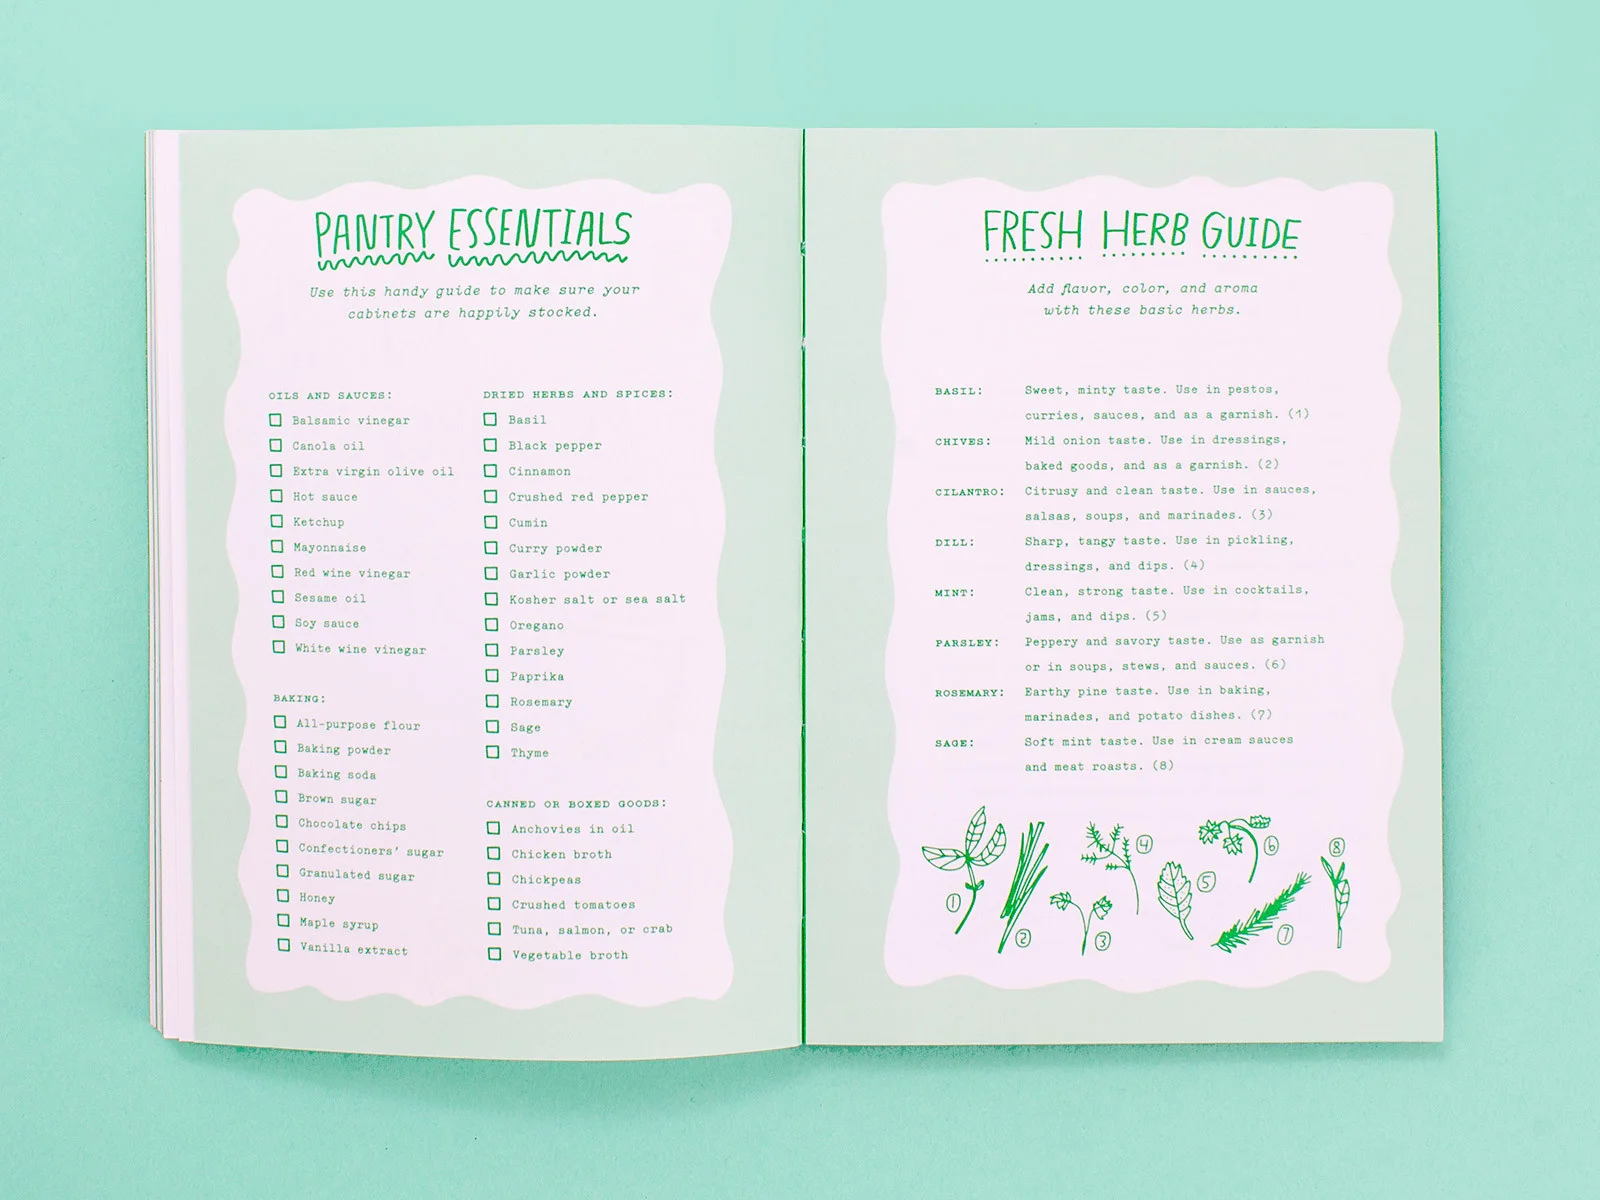 PANTRY ESSENTIALS
Use this handy guide to make sure your
cabinets are happily stocked.
OILS AND SAUCES:
Balsamic vinegar
Canola oil
Extra virgin olive oil
Hot sauce
Ketchup
Mayonnaise
Red wine vinegar
Sesame oil
Soy sauce
White wine vinegar
BAKING:
All-purpose flour
Baking powder
Baking soda
Brown sugar
Chocolate chips
Confectioners' sugar
Granulated sugar
Honey
Maple syrup
Vanilla extract
DRIED HERBS AND SPICES:
Basil
Black pepper
Cinnamon
Crushed red pepper
Cumin
Curry powder
Garlic powder
Kosher salt or sea salt
Oregano
Parsley
Paprika
Rosemary
Sage
Thyme
CANNED OR BOXED GOODS:
Anchovies in oil
Chicken broth
Chickpeas
Crushed tomatoes
Tuna, salmon, or crab
Vegetable broth
FRESH HERB GUIDE
Add flavor, color, and aroma
with these basic herbs.
BASIL: Sweet, minty taste. Use in pestos,
curries, sauces, and as a garnish. (1)
CHIVES: Mild onion taste. Use in dressings,
baked goods, and as a garnish. (2)
CILANTRO: Citrusy and clean taste. Use in sauces,
salsas, soups, and marinades. (3)
DILL: Sharp, tangy taste. Use in pickling,
dressings, and dips. (4)
MINT: Clean, strong taste. Use in cocktails,
jams, and dips. (5)
PARSLEY: Peppery and savory taste. Use as garnish
or in soups, stews, and sauces. (6)
ROSEMARY: Earthy pine taste. Use in baking,
marinades, and potato dishes. (7)
SAGE: Soft mint taste. Use in cream sauces
and meat roasts. (8)
1
2
3
4
5
6
7
8